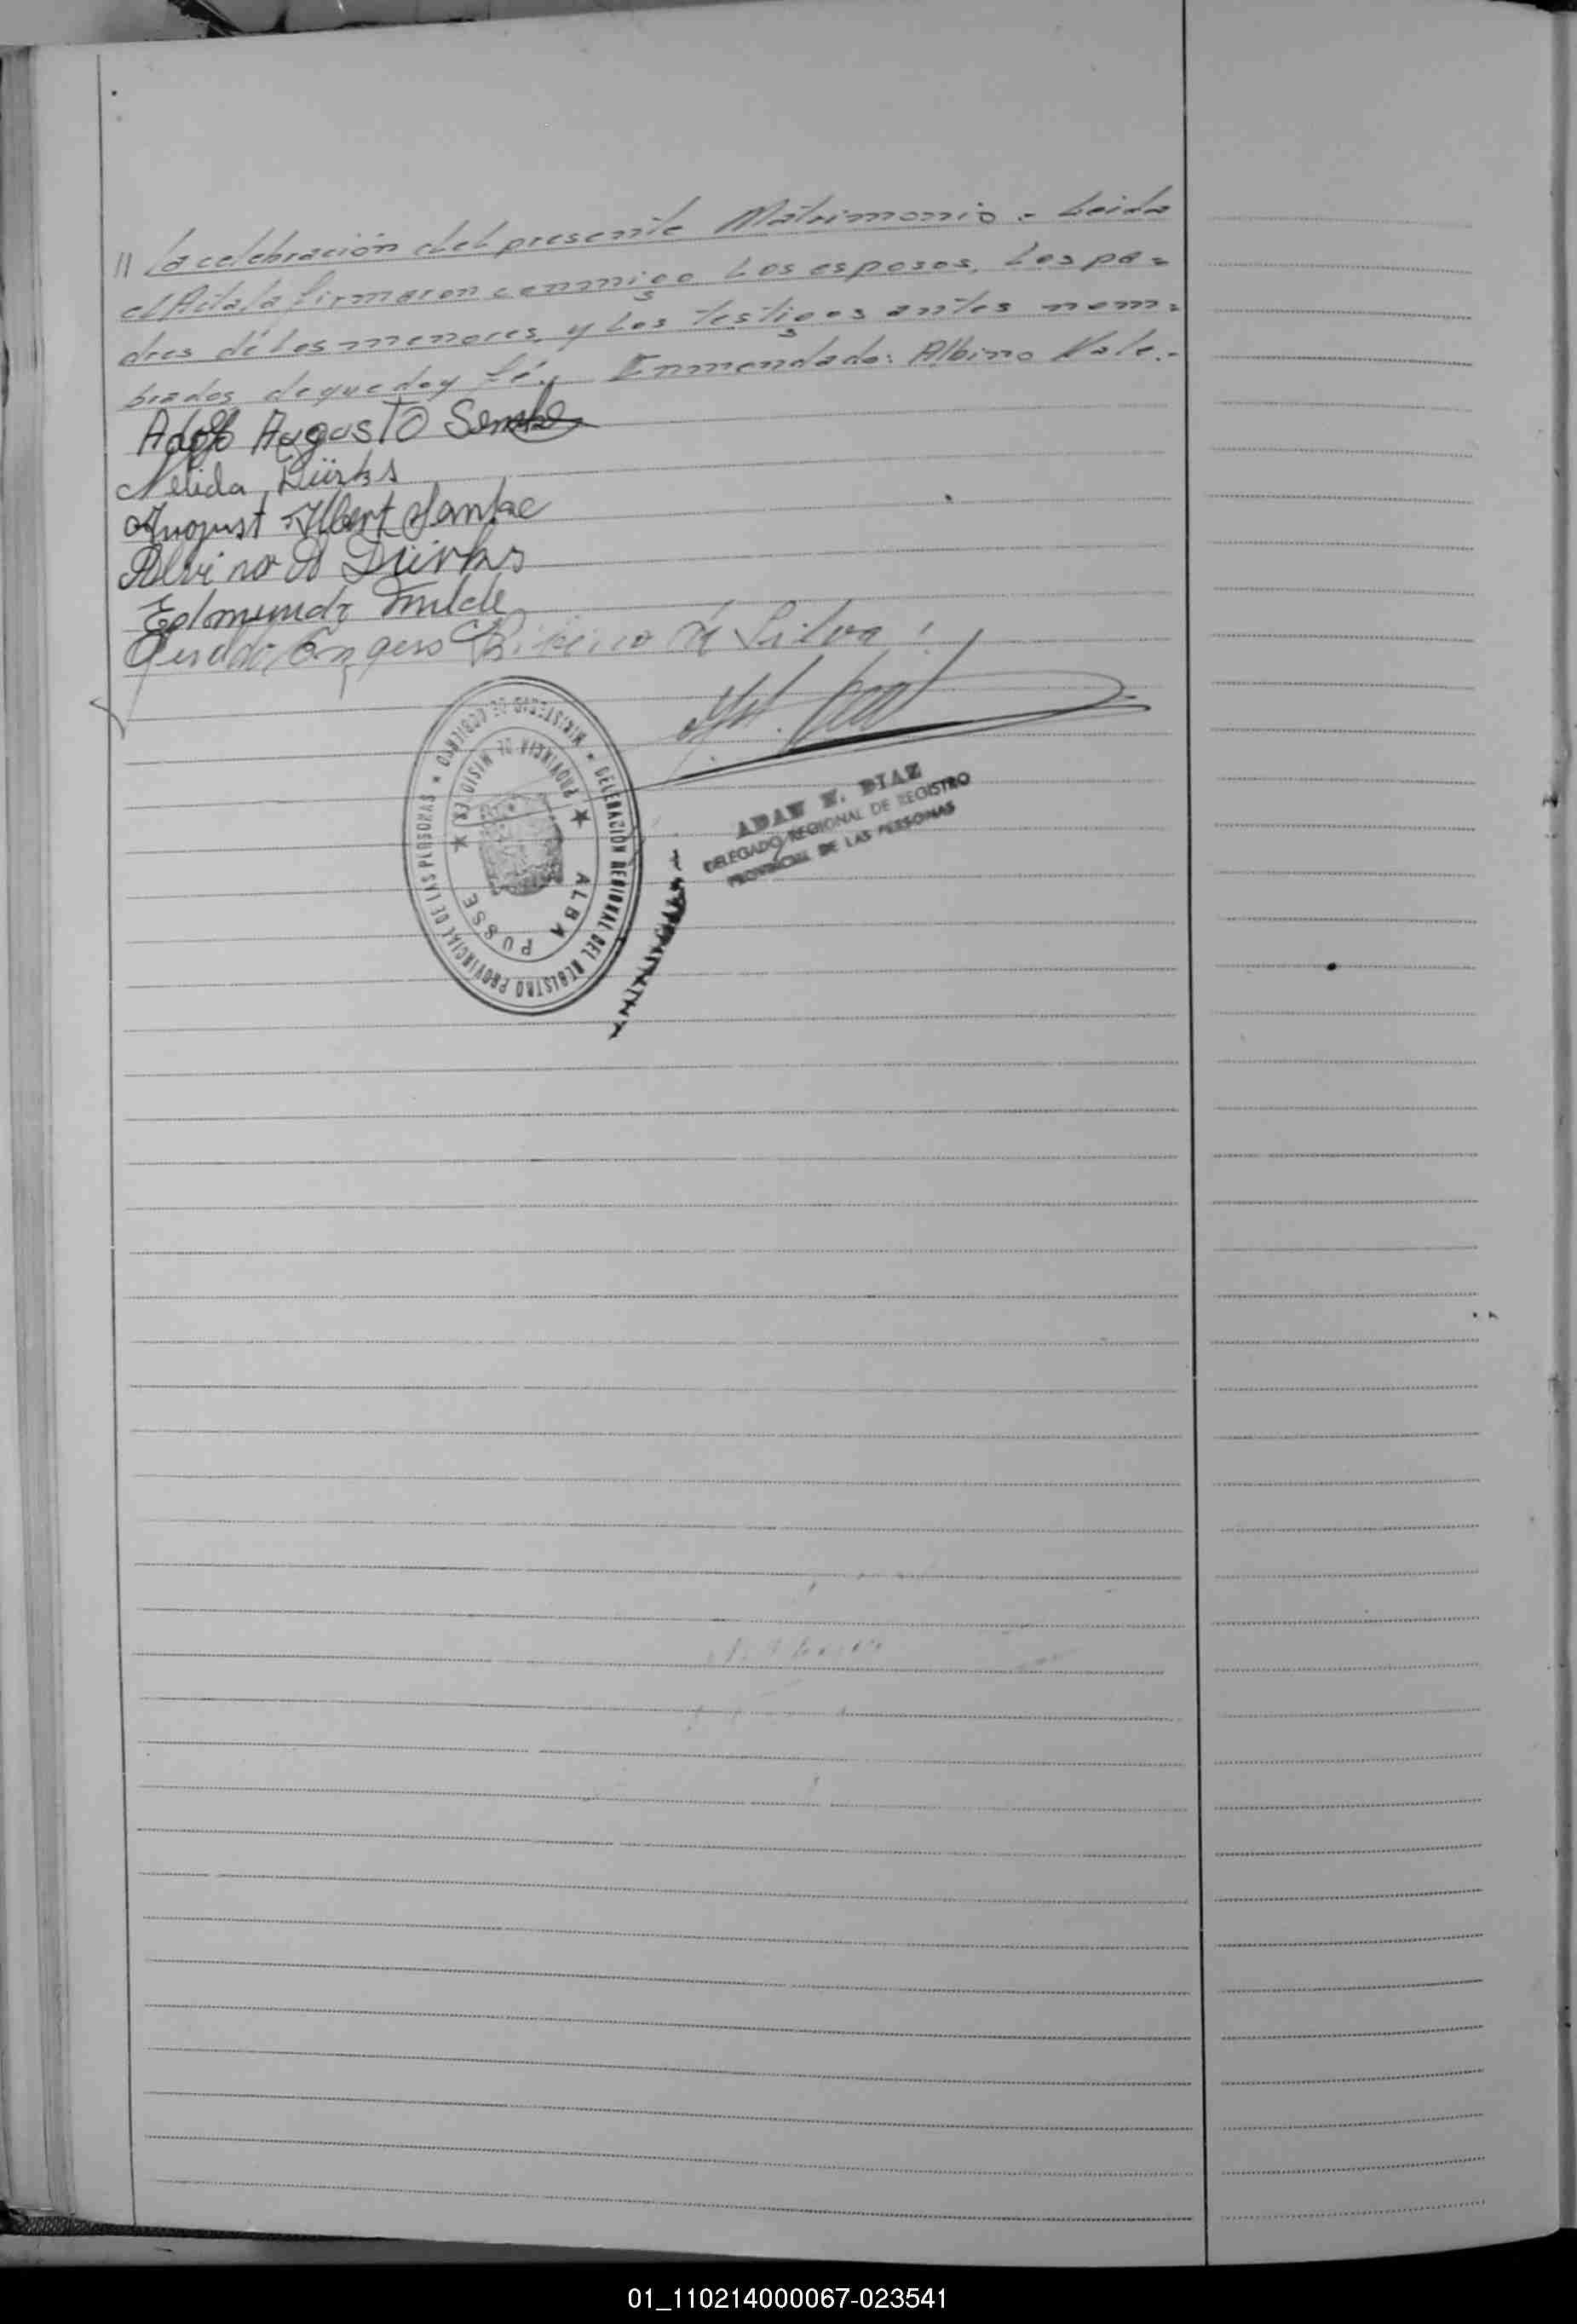 // La celebración del presente Matrimonio.- Leida
el Acta, la firmaron conmigo Los esposos, Los pa=
dres de Los menores, y Los testigos antes nom=
brados de que doy fé.- Enmendado: Albino Vale.-
Adolfo Augusto
Nelida Dürks
August Albert
Alvino A Dürks
Edmundo
da Silva
MINISTERIO DE GOBIERNO ★ DELEGACIÓN REGIONAL DEL REGISTRO PROVINCIAL DE LAS PERSONAS ★
PROVINCIA DE MISIONES ★ ALBA POSSE ★
ADAN N. DIAZ
DELEGADO REGIONAL DE REGISTRO
PROVINCIAL DE LAS PERSONAS
01_110214000067-023541